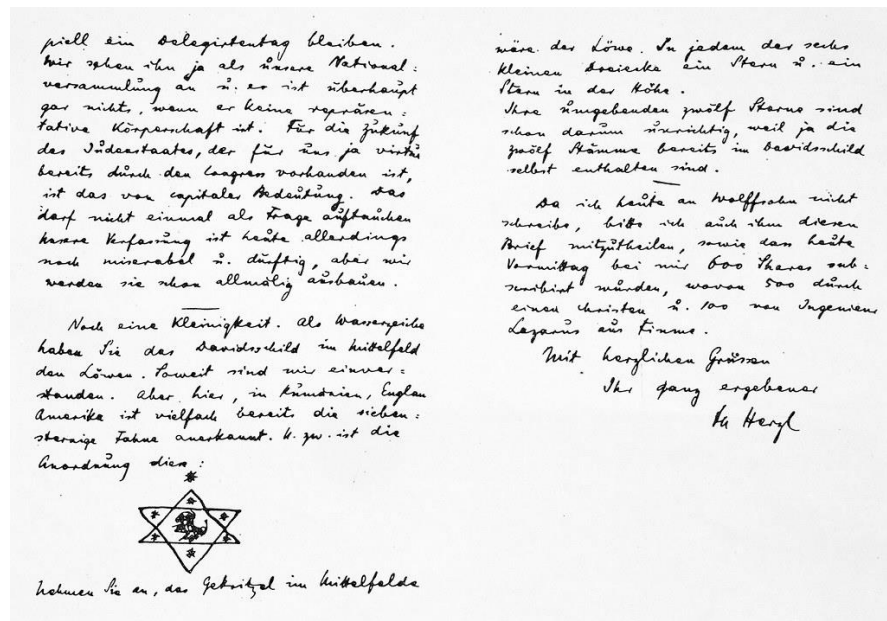 piell ein Delegirtentag bleiben.
Wir sehen ihn ja als unsere National:
versammlung an u. er ist überhaupt
gar nichts, wenn er keine repräsen:
tative Körperschaft ist. Für die Zukunf
des Judenstaates, der für uns ja virtu
bereits durch den Congress vorhanden ist,
ist das von capitaler Bedeutung. Das
darf nicht einmal als Frage auftauchen
Unsere Verfassung ist heute allerdings
noch miserabel u. dürftig, aber wir
werden sie schon allmälig ausbauen.
Noch eine Kleinigkeit. Als Wasserzeiche
haben Sie das Davidsschild im Mittelfeld
den Löwen. Soweit sind wir einver-
standen. Aber hier, in Rumänien, Englan
Amerika ist vielfach bereits die sieben:
sternige Fahne anerkannt. U. zw. ist die
Anordnung diese:
Nehmen Sie an, das Gekritzel im Mittelfelde
wäre der Löwe. In jedem der sechs
kleinen Dreiecke ein Stern u. ein
Stern in der Höhe.
Ihre umgebenden zwölf Sterne sind
schon darum unrichtig, weil ja die
zwölf Stämme bereits im Davidsschild
selbst enthalten sind.
Da ich heute an Wolffsohn nicht
schreibe, bitte ich auch ihm diesen
Brief mitzutheilen, sowie dass heute
Vormittag bei mir 600 Shares sub:
scribirt wurden, wovon 500 durch
einen Christen u. 100 von Ingenieur
Lazarus aus Fiume.
Mit herzlichen Grüssen
Ihr ganz ergebener
Th Herzl